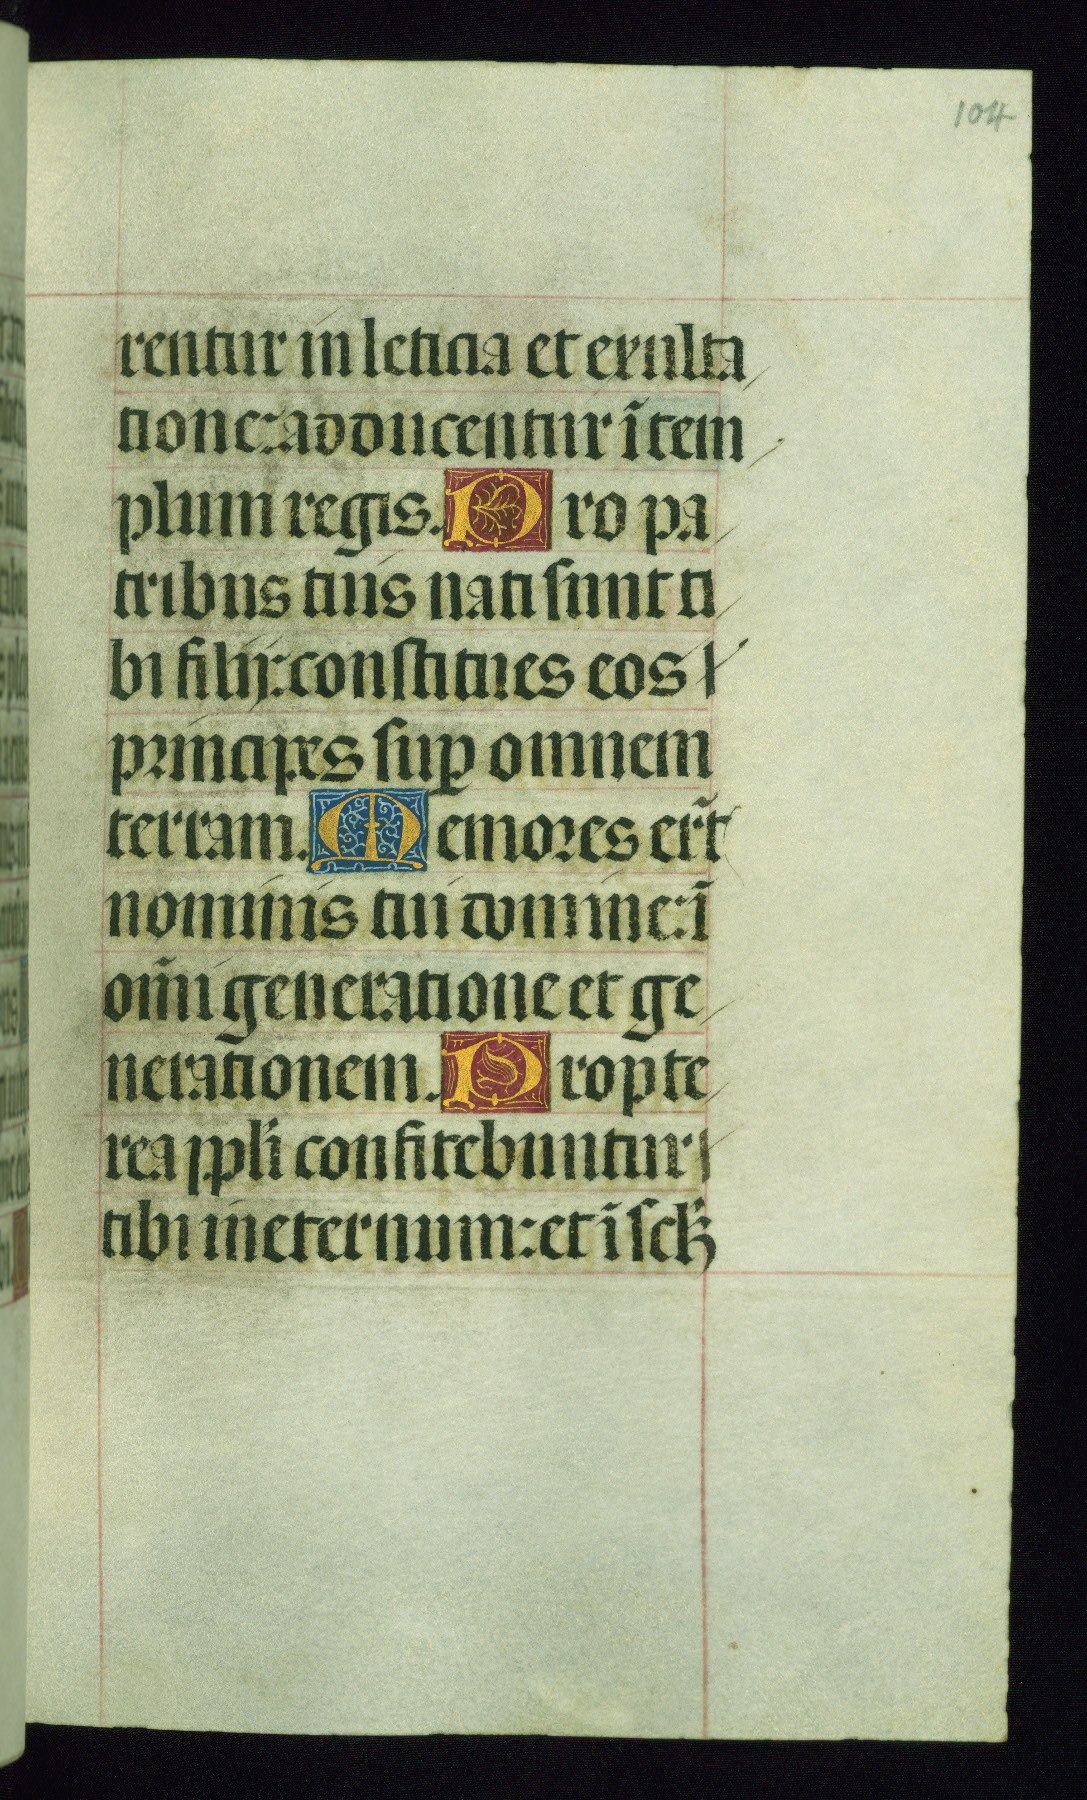 104
rentur in leticia et exulta
tione: adducentur ī tem
plum regis. Pro pa
tribus tuis nati sunt ti
bi filij: constitues eos
principes sup̱ omnem
terram. Memores er̄t
nominis tui domine: ī
om̄i generatione et ge
nerationem. Propte
rea ppl'i confitebuntur
tibi in eternum: et ī sc'lꝫ